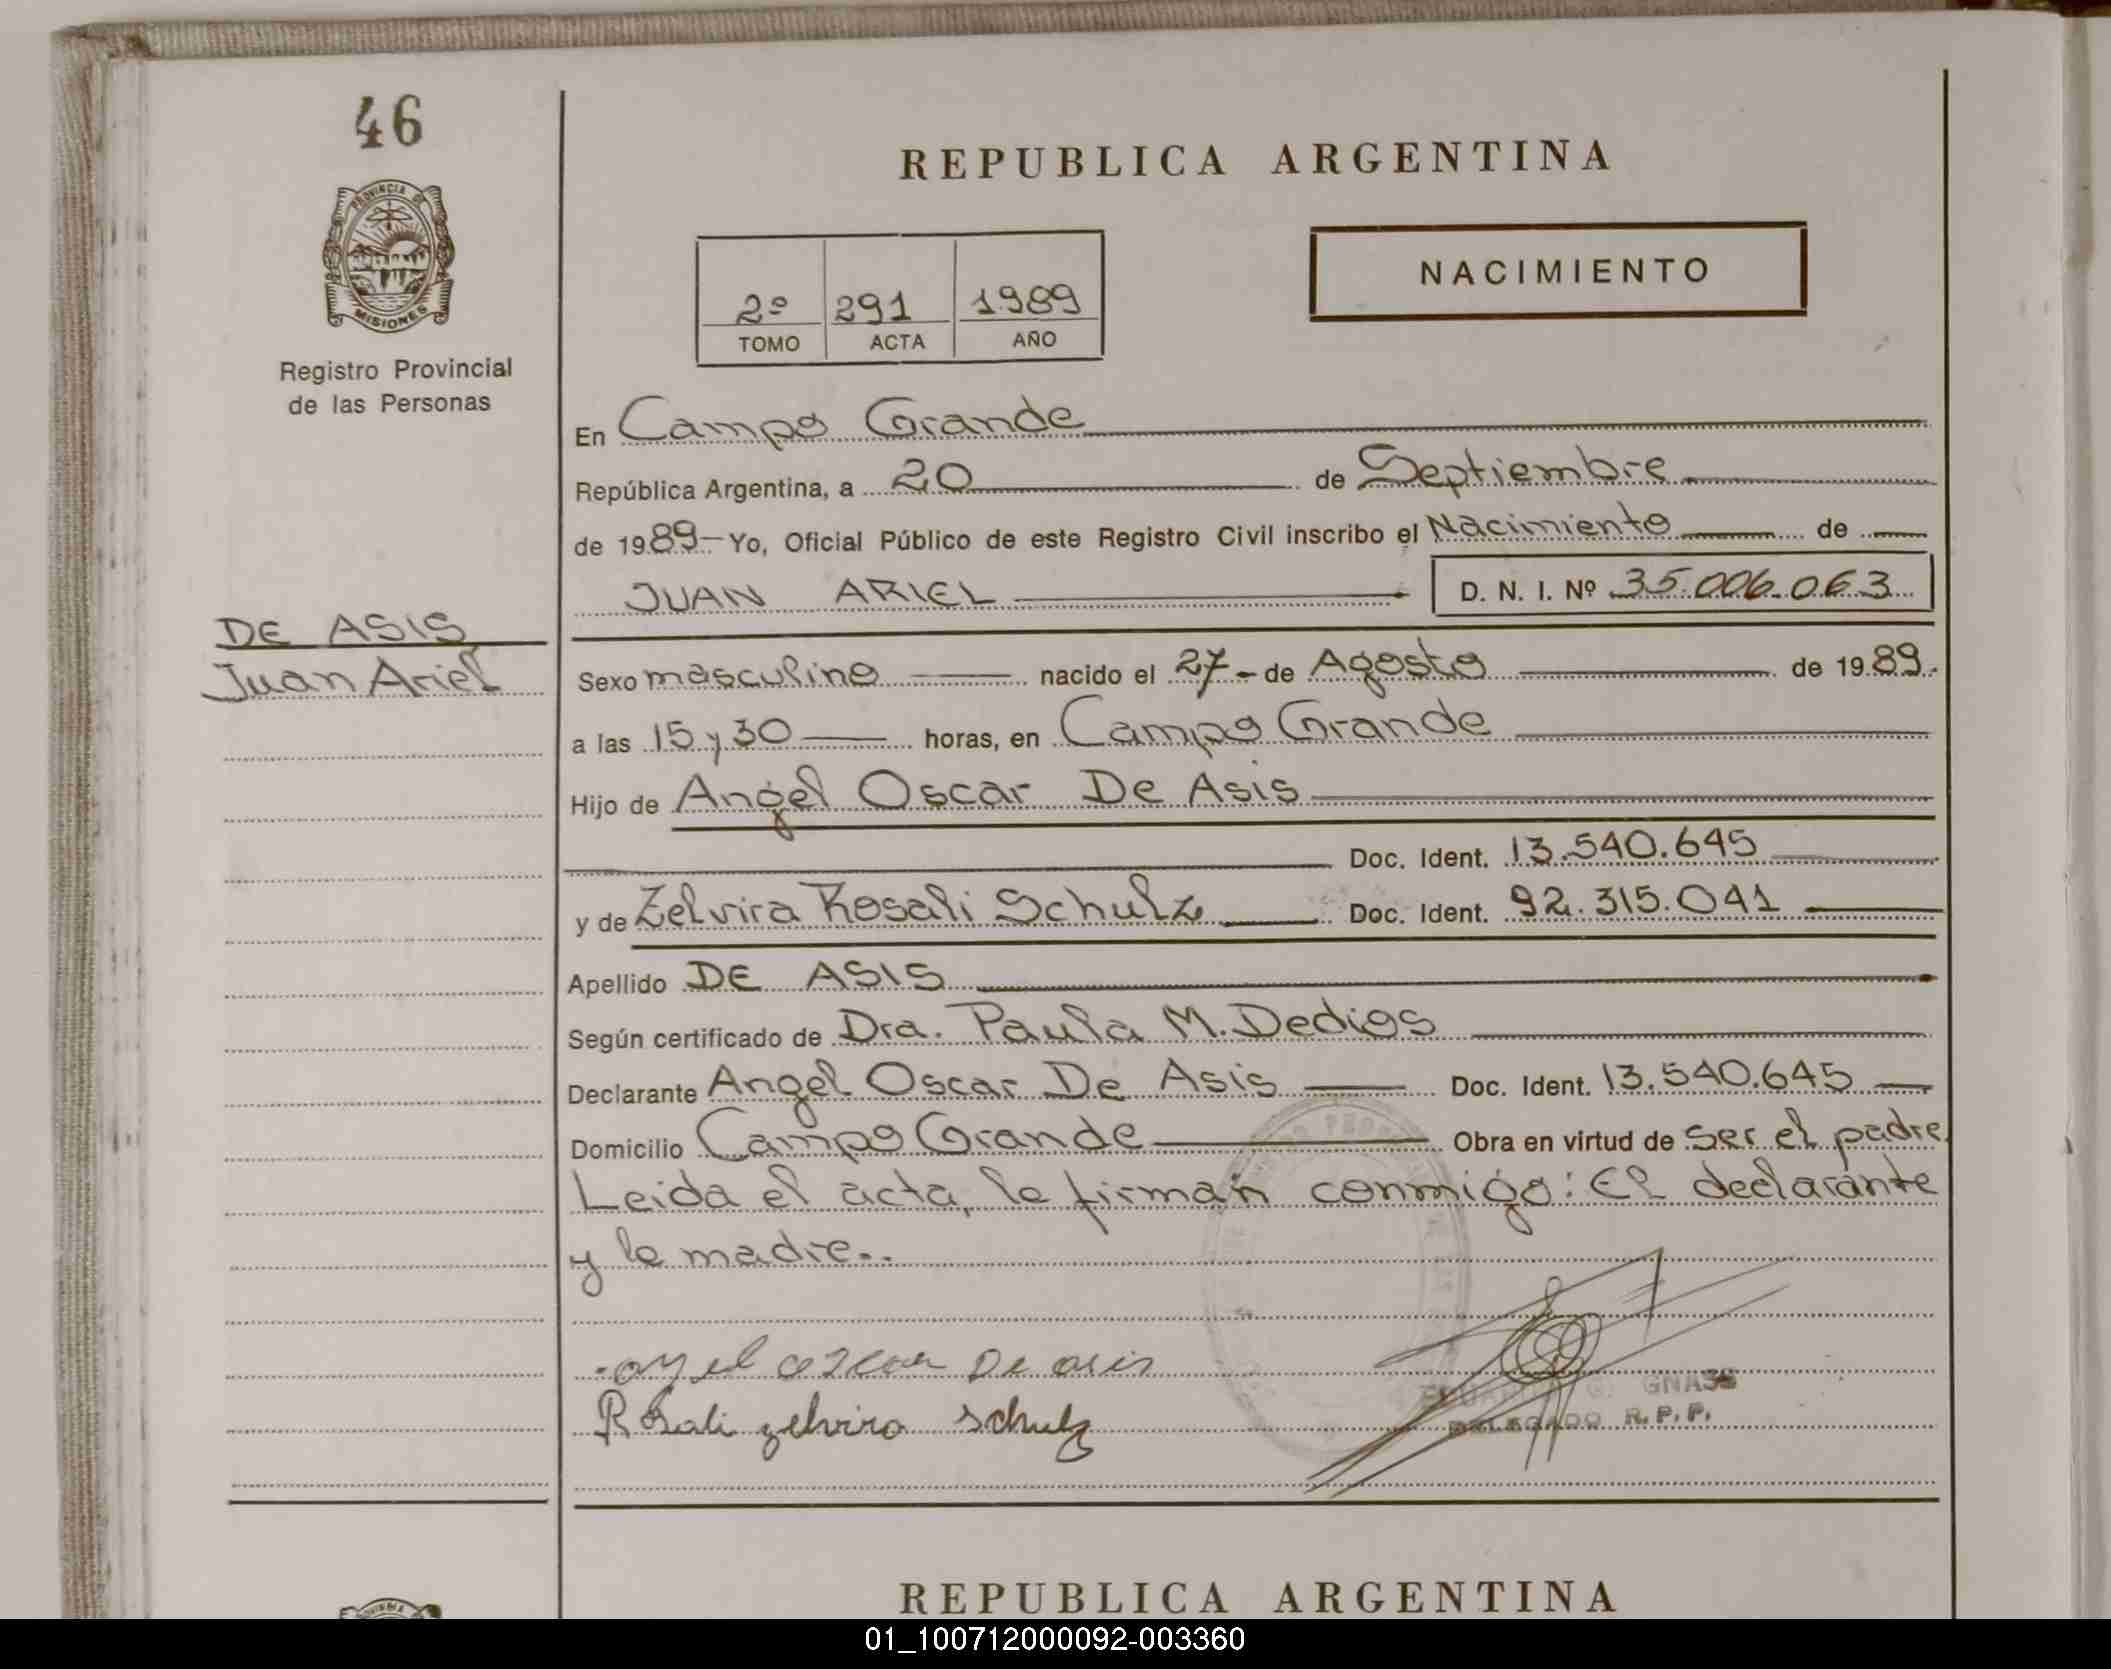 46
PROVINCIA DE
MISIONES
Registro Provincial
de las Personas
DE ASIS
Juan Ariel
REPUBLICA ARGENTINA
2º 291 1989
TOMO ACTA AÑO
NACIMIENTO
En Campo Grande
República Argentina, a 20 de Septiembre
de 1989 Yo, Oficial Público de este Registro Civil inscribo el Nacimiento de
JUAN ARIEL D. N. I. Nº 35.006.063
Sexo masculino nacido el 27 - de Agosto de 1989.
a las 15 y 30 horas, en Campo Grande
Hijo de Angel Oscar De Asis
Doc. Ident. 13.540.645
y de Zelvira Rosali Schulz Doc. Ident. 92.315.041
Apellido DE ASIS
Según certificado de Dra. Paula M. Dedios
Declarante Angel Oscar De Asis Doc. Ident. 13.540.645
Domicilio Campo Grande Obra en virtud de ser el padre.
Leida el acta, la firman conmigo: El declarante
y la madre..
angel oscar De asis
Rosali zelvira schulz
G. GNASS
DELEGADO R.P.P.
REPUBLICA ARGENTINA
01_100712000092-003360